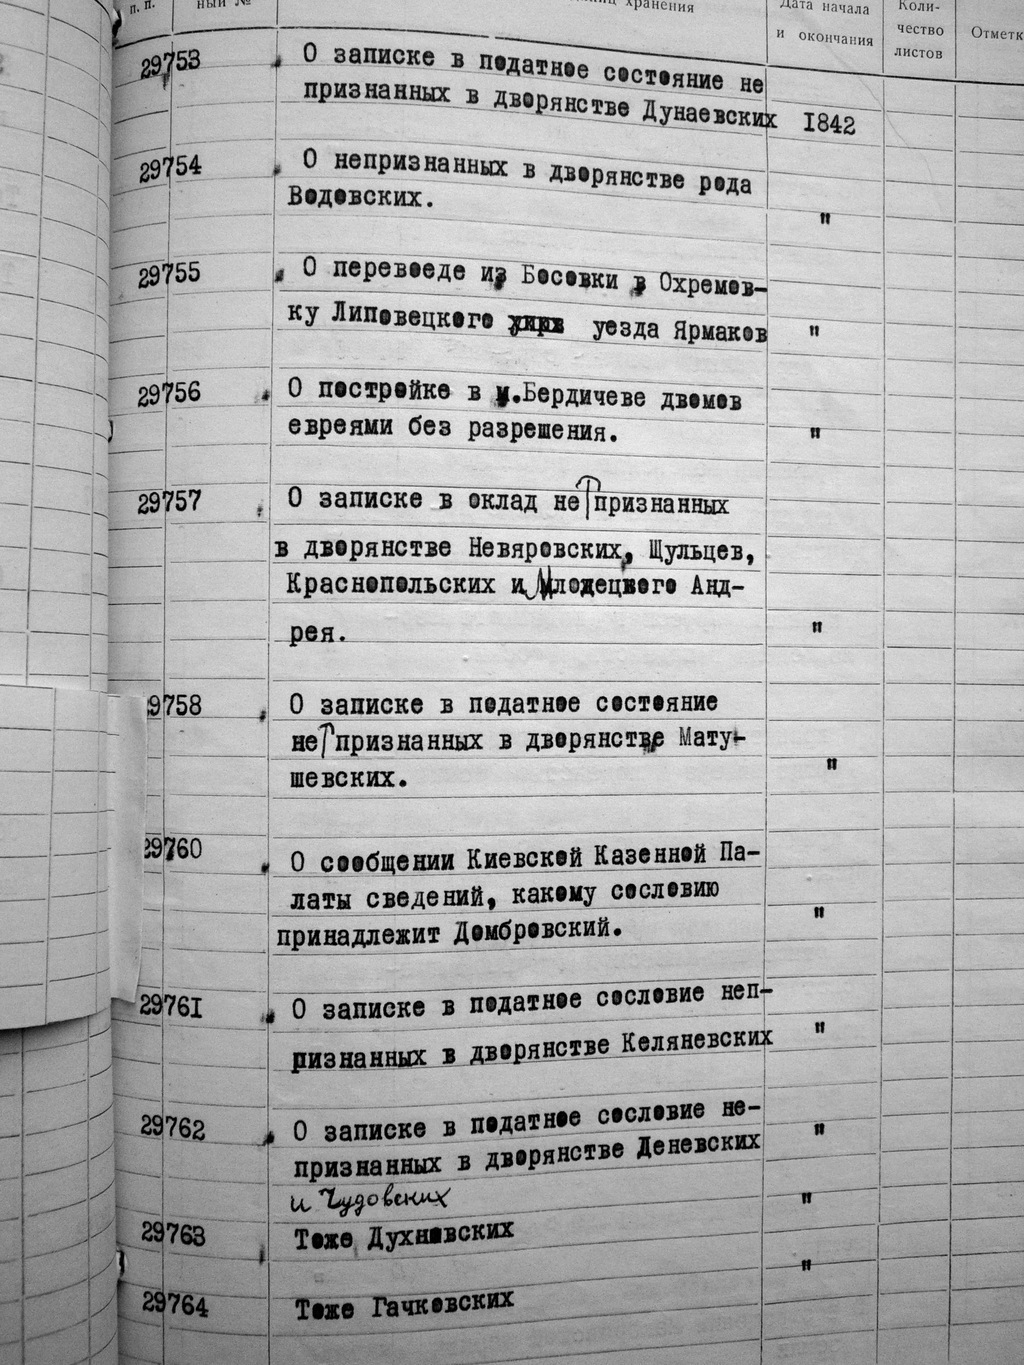 п. п.
ный №
хранения
Дата начала
и окончания
Коли-
чество
листов
Отметк
29753 О записке в податное состояние не
признанных в дворянстве Дунаевских 1842
29754 О непризнанных в дворянстве рода
Водовских. "
29755 О перевоеде из Босовки в Охремов-
ку Липовецкого уезда Ярмаков "
29756 О постройке в м.Бердичеве двомов
евреями без разрешения. "
29757 О записке в оклад не признанных
в дворянстве Невяровских, Щульцев,
Краснопольских и Млодецкого Анд-
рея. "
29758 О записке в податное состояние
не признанных в дворянстве Мату-
шевских. "
29760 О сообщении Киевской Казенной Па-
латы сведений, какому сословию
принадлежит Домбровский. "
29761 О записке в податное сословие неп-
ризнанных в дворянстве Келяневских "
29762 О записке в податное сословие не-
признанных в дворянстве Деневских "
и Чудовских "
29763 Тоже Духновских
"
29764 Тоже Гачковских